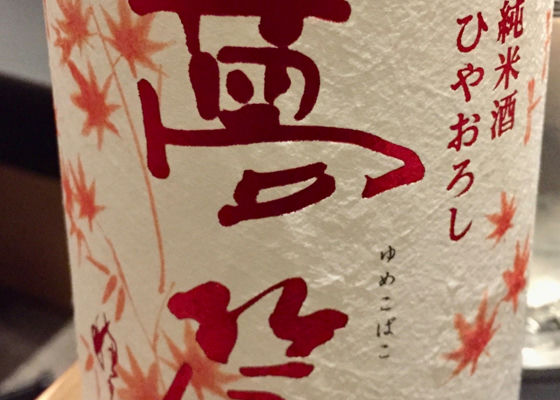 純米酒
ひやおろし
夢
ゆめこばこ